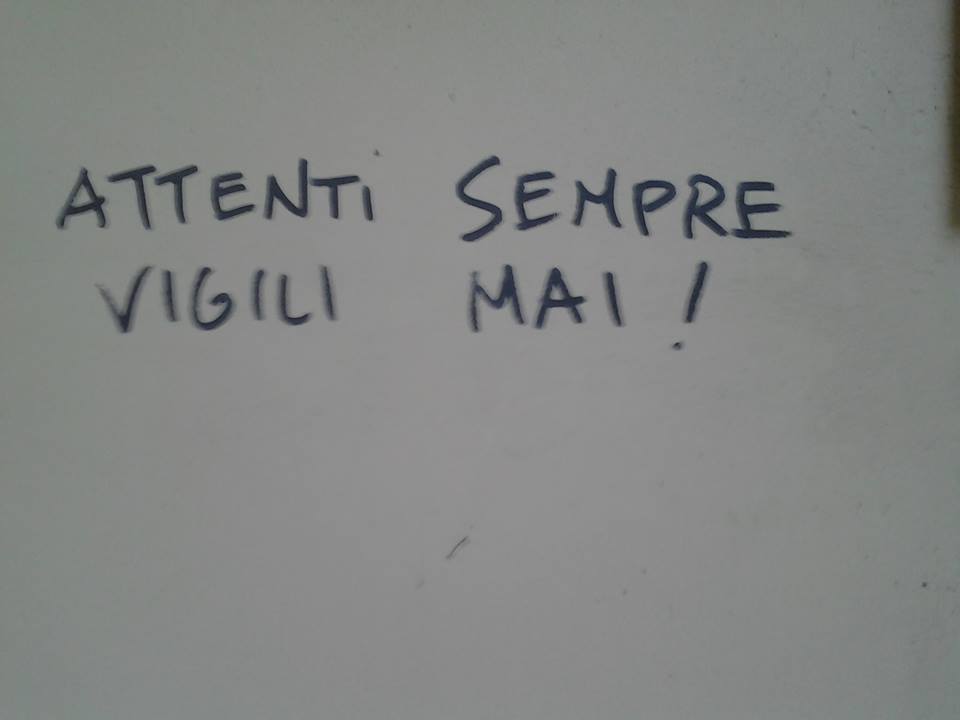 ATTENTI SEMPRE
VIGILI MAI!